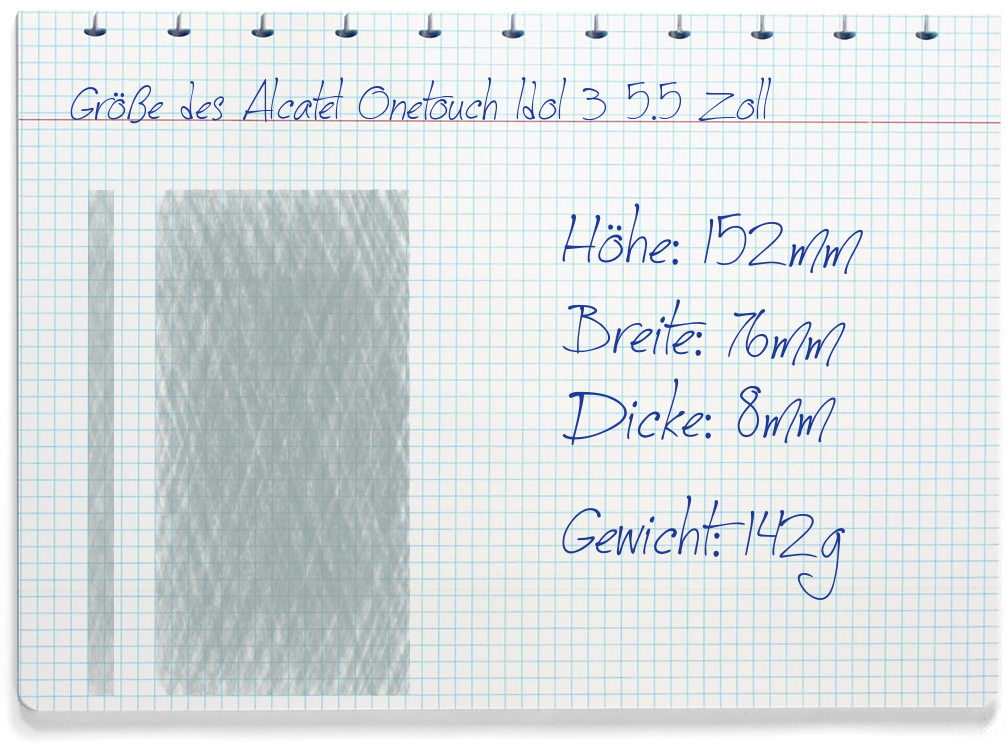 Größe des Alcatel Onetouch Idol 3 5.5 Zoll
Höhe: 152mm
Breite: 76mm
Dicke: 8mm
Gewicht: 142g